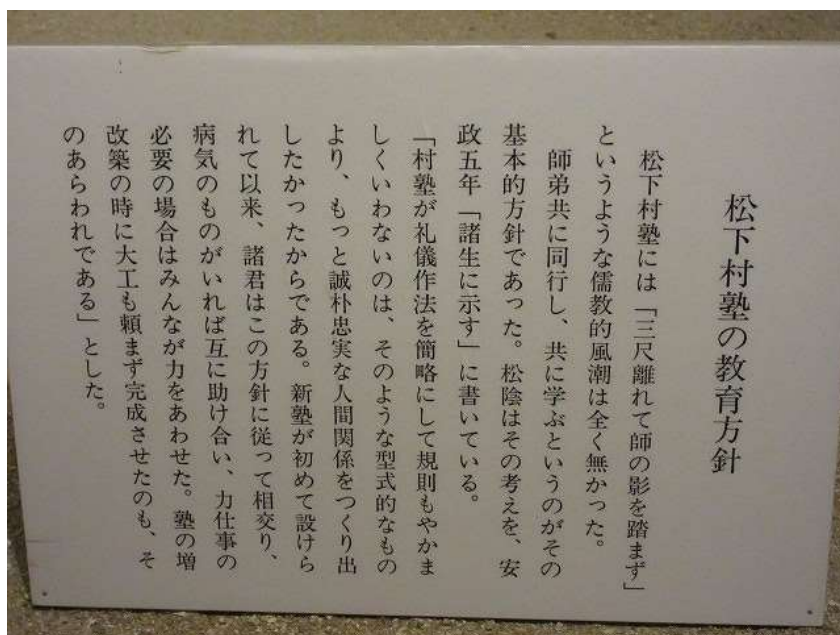 松下村塾の教育方針
松下村塾には「三尺離れて師の影を踏まず」
というような儒教的風潮は全く無かった。
師弟共に同行し、共に学ぶというのがその
基本的方針であった。松陰はその考えを、安
政五年「諸生に示す」に書いている。
「村塾が礼儀作法を簡略にして規則もやかま
しくいわないのは、そのような型式的なもの
より、もっと誠朴忠実な人間関係をつくり出
したかったからである。新塾が初めて設けら
れて以来、諸君はこの方針に従って相交り、
病気のものがいれば互に助け合い、力仕事の
必要の場合はみんなが力をあわせた。塾の増
改築の時に大工も頼まず完成させたのも、そ
のあらわれである」とした。